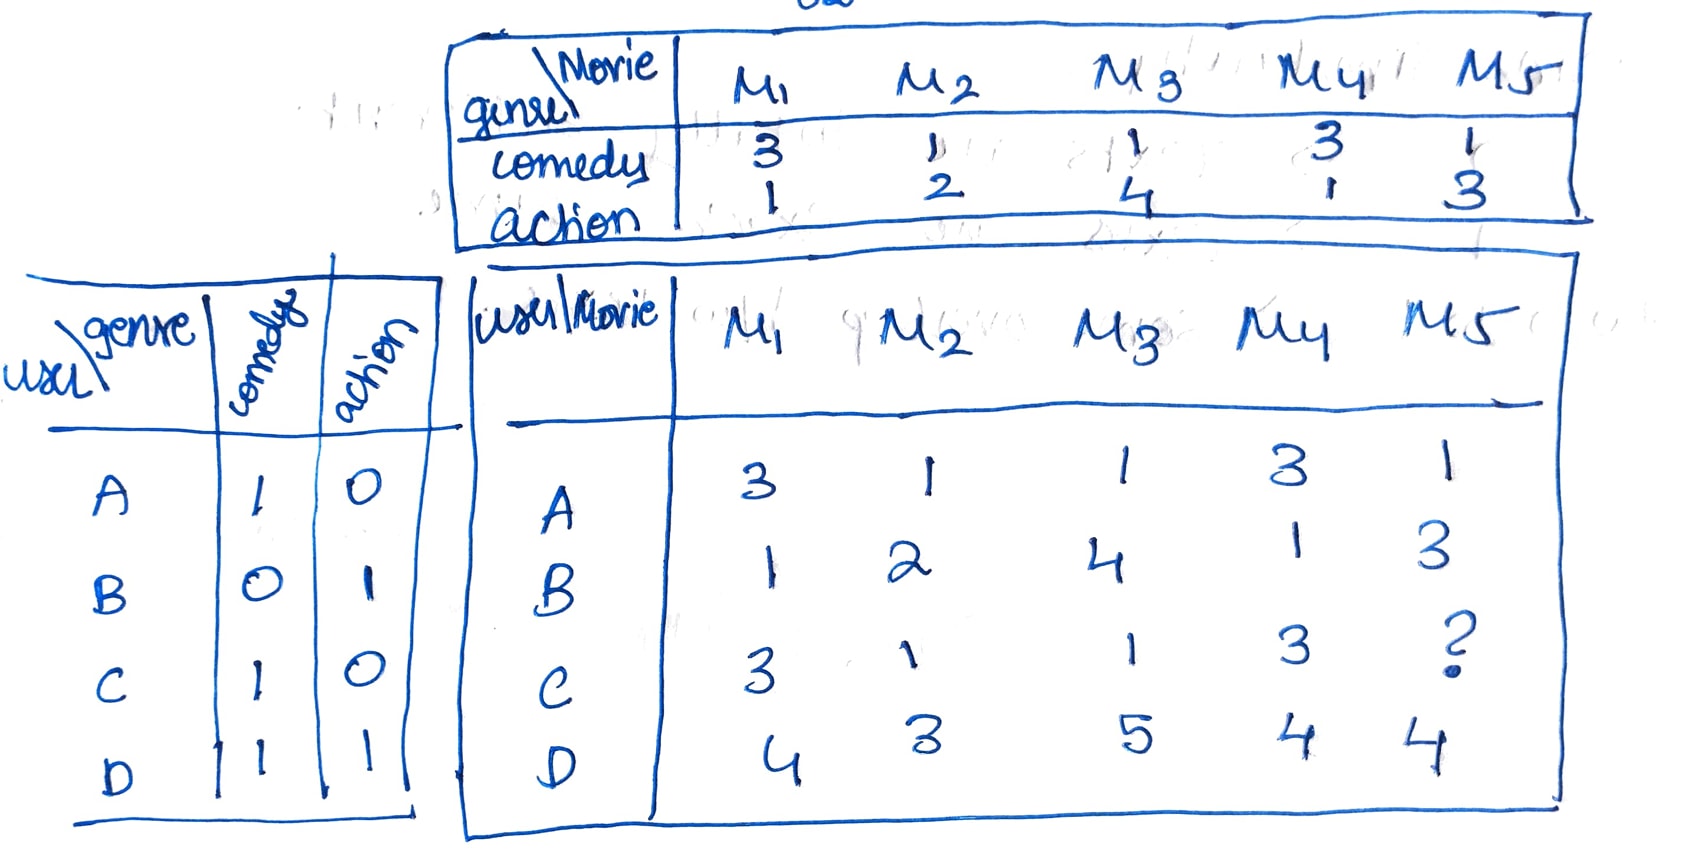 genre\Movie M1 M2 M3 M4 M5
comedy 3 1 1 3 1
action 1 2 4 1 3
user\genre comedy action
A 1 0
B 0 1
C 1 0
D 1 1
user\Movie M1 M2 M3 M4 M5
A 3 1 1 3 1
B 1 2 4 1 3
C 3 1 1 3 ?
D 4 3 5 4 4